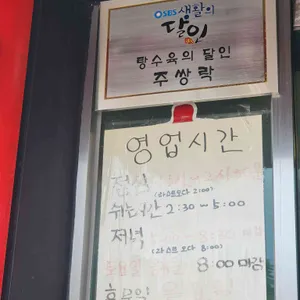 SBS 생활의
달인
탕수육의 달인
주쌍락
영업시간
점심
(라스트오다 2:00)
쉬는시간 2:30~5:00
저녁
(라스트오다 8:00)
8:00 마감
휴무일